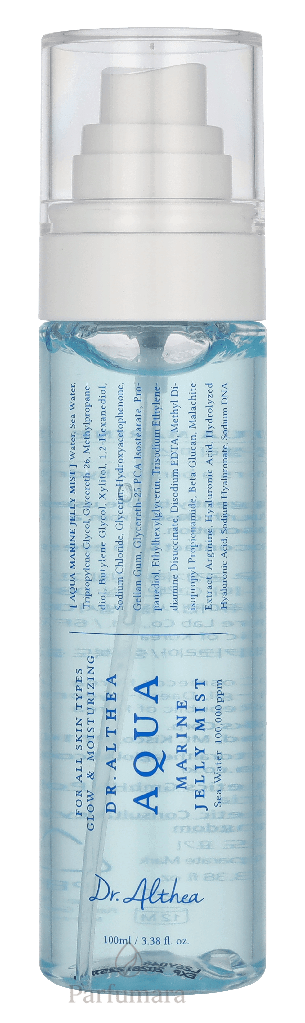 [ AQUA MARINE JELLY MIST ] Water, Sea Water,
Tripropylene Glycol, Glycereth-26, Methylpropane
diol, Butylene Glycol, Xylitol, 1,2-Hexanediol,
Sodium Chloride, Glycerin, Hydroxyacetophenone,
Gellan Gum, Glycereth-25 PCA Isostearate, Pro-
panediol Ethylhexylglycerin, Trisodium Ethylene-
diamine Disuccinate, Disodium EDTA, Methyl Di-
isopropyl Propionamide, Beta-Glucan, Malachite
Extract, Arginine, Hyaluronic Acid, Hydrolyzed
Hyaluronic Acid, Sodium Hyaluronate, Sodium DNA
FOR ALL SKIN TYPES
GLOW & MOISTURIZING
DR.ALTHEA
AQUA
MARINE
JELLY MIST
Sea Water 100,000ppm
Dr. Althea
100ml / 3.38 fl. oz.
Parfumara